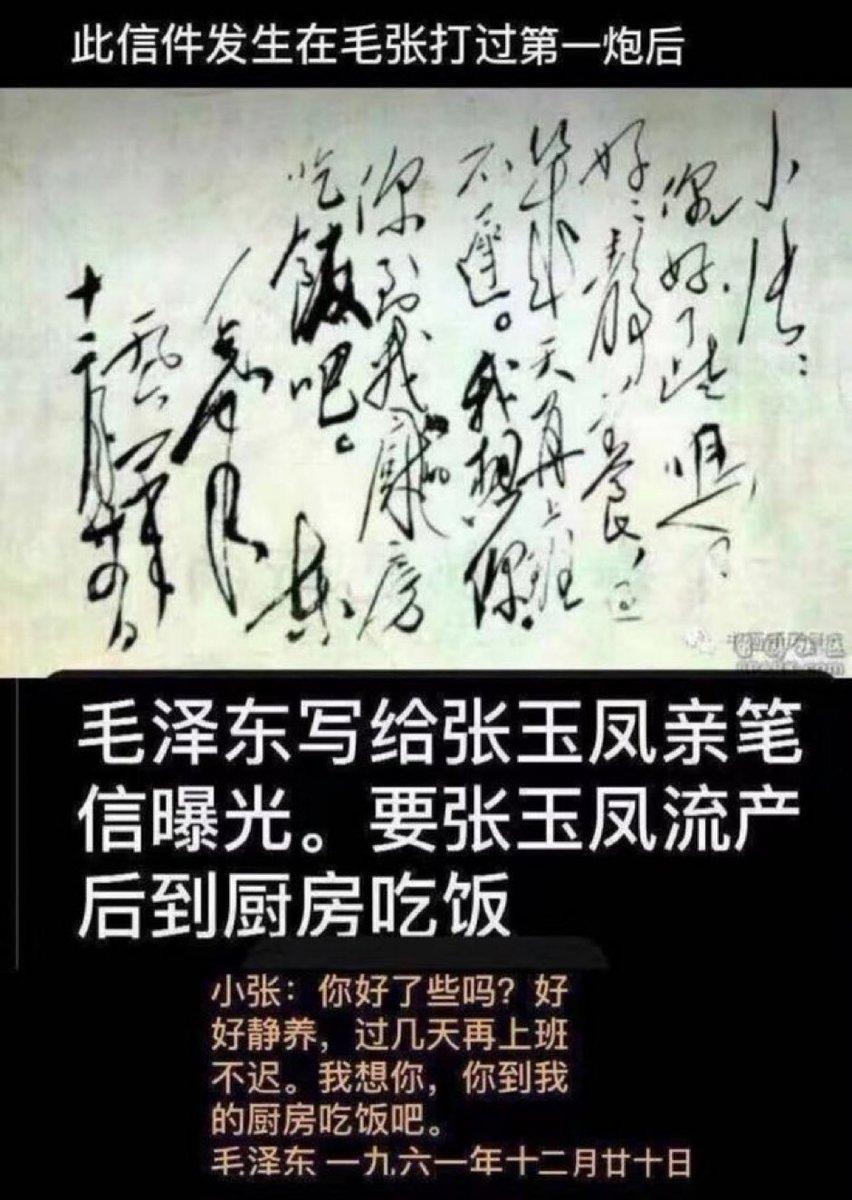 此信件发生在毛张打过第一炮后
小张:
你好了些
好好静养,
幾天再上班
不遲。我想你。
你到我的厨房
吃飯吧。
毛泽东写给张玉凤亲笔
信曝光。要张玉凤流产
后到厨房吃饭
小张：你好了些吗？好
好静养，过几天再上班
不迟。我想你，你到我
的厨房吃饭吧。
毛泽东 一九六一年十二月廿十日